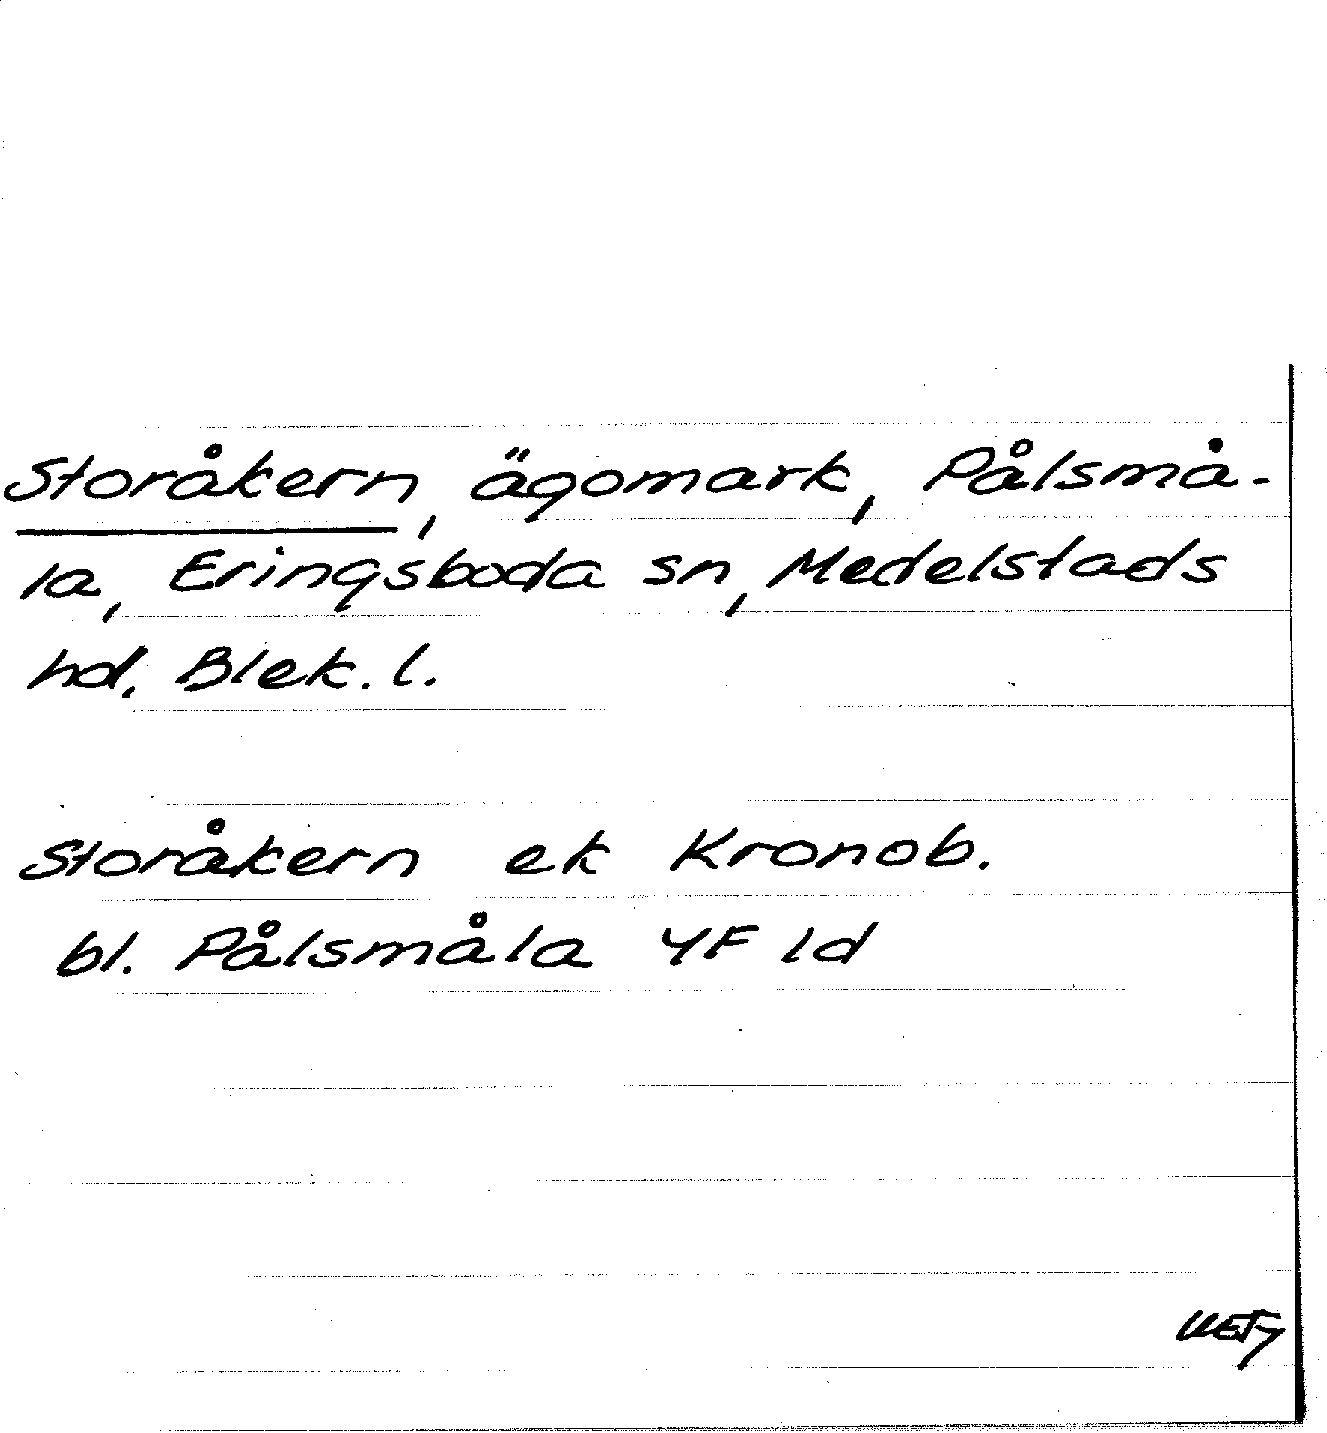 Storåkern, ägomark, Pålsmå-
la, Eringsboda sn, Medelstads
hd. Blek. l.
Storåkern ek Kronob.
bl. Pålsmåla 4F 1d